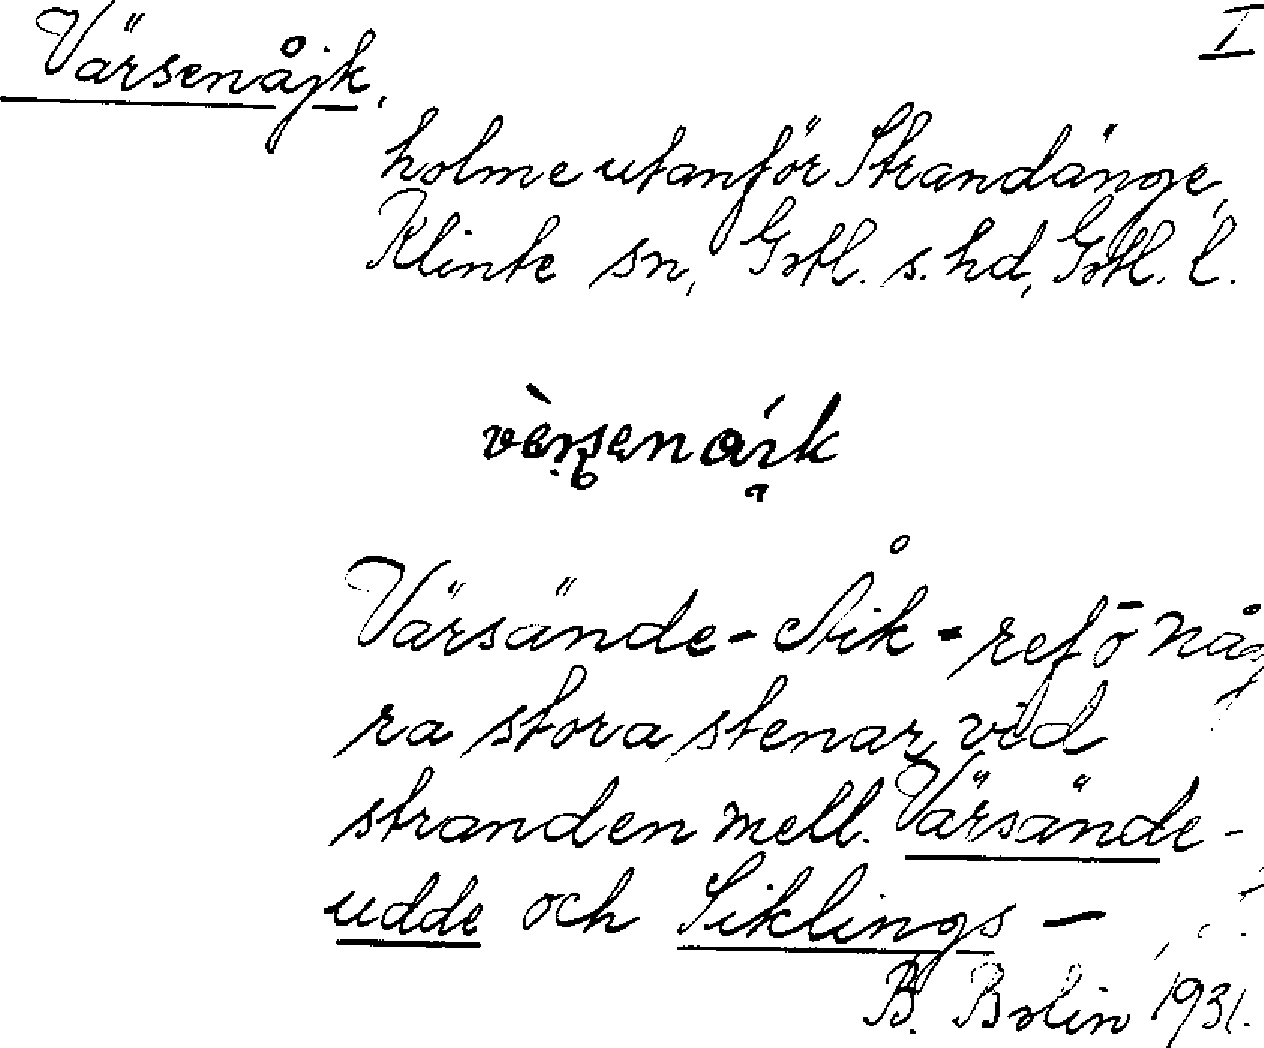 Värsenåjk. I
holme utanför Strandänge,
Klinte sn, Gotl. s. hd, Gotl. l.
Värsände-Åik-ref ō någ
ra stora stenar vid
stranden mell. Värsände-
udde och Siklings —
B. Bolin 1931.